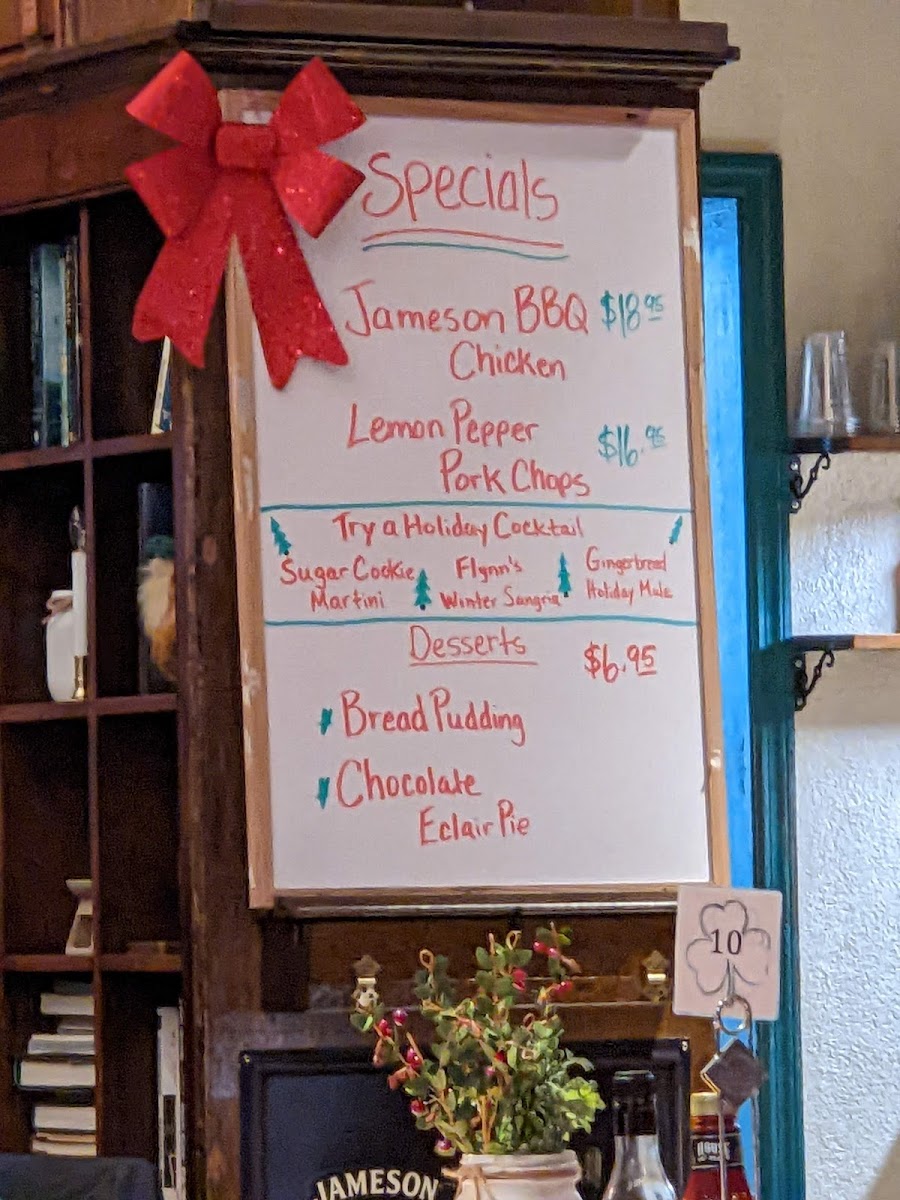 Specials
Jameson BBQ $18.95
Chicken
Lemon Pepper $16.95
Pork Chops
Try a Holiday Cocktail
Sugar Cookie
Martini
Flynn's
Winter Sangria
Gingerbread
Holiday Mule
Desserts $6.95
Bread Pudding
Chocolate
Eclair Pie
10
JAMESON